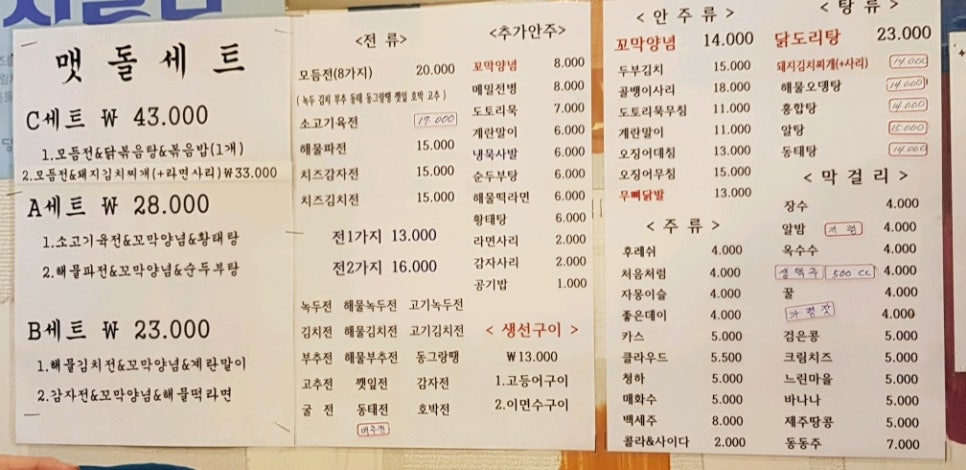 맷돌세트
C세트 ₩ 43.000
1.모듬전&닭볶음탕&볶음밥(1개)
2.모듬전&돼지김치찌개(+라면사리)₩33.000
A세트 ₩ 28.000
1.소고기육전&꼬막양념&황태탕
2.해물파전&꼬막양념&순두부탕
B세트 ₩ 23.000
1.해물김치전&꼬막양념&계란말이
2.감자전&꼬막양념&해물떡라면
<전 류>
모듬전(8가지) 20.000
( 녹두 김치 부추 동태 동그랑땡 깻잎 호박 고추 )
소고기육전 17.000
해물파전 15.000
치즈감자전 15.000
치즈김치전 15.000
전1가지 13.000
전2가지 16.000
녹두전 해물녹두전 고기녹두전
김치전 해물김치전 고기김치전
부추전 해물부추전 동그랑땡
고추전 깻잎전 감자전
굴 전 동태전 호박전
배추전
<추가안주>
꼬막양념 8.000
메밀전병 8.000
도토리묵 7.000
계란말이 6.000
냉묵사발 6.000
순두부탕 6.000
해물떡라면 6.000
황태탕 6.000
라면사리 2.000
감자사리 2.000
공기밥 1.000
< 생선구이 >
₩13.000
1.고등어구이
2.이면수구이
< 안 주 류 >
꼬막양념 14.000
두부김치 15.000
골뱅이사리 18.000
도토리묵무침 11.000
계란말이 11.000
오징어데침 13.000
오징어무침 15.000
무뼈닭발 13.000
< 주 류 >
후레쉬 4.000
처음처럼 4.000
자몽이슬 4.000
좋은데이 4.000
카스 5.000
클라우드 5.500
청하 5.000
매화수 5.000
백세주 8.000
콜라&사이다 2.000
< 탕 류 >
닭도리탕 23.000
돼지김치찌개(+사리) 14.000
해물오뎅탕 14.000
홍합탕 14.000
알탕 15.000
동태탕 14.000
< 막 걸 리 >
장수 4.000
알밤 4.000
옥수수 4.000
생맥주 500 cc 4.000
꿀 4.000
가평잣 4.000
검은콩 5.000
크림치즈 5.000
느린마을 5.000
바나나 5.000
제주땅콩 5.000
동동주 7.000